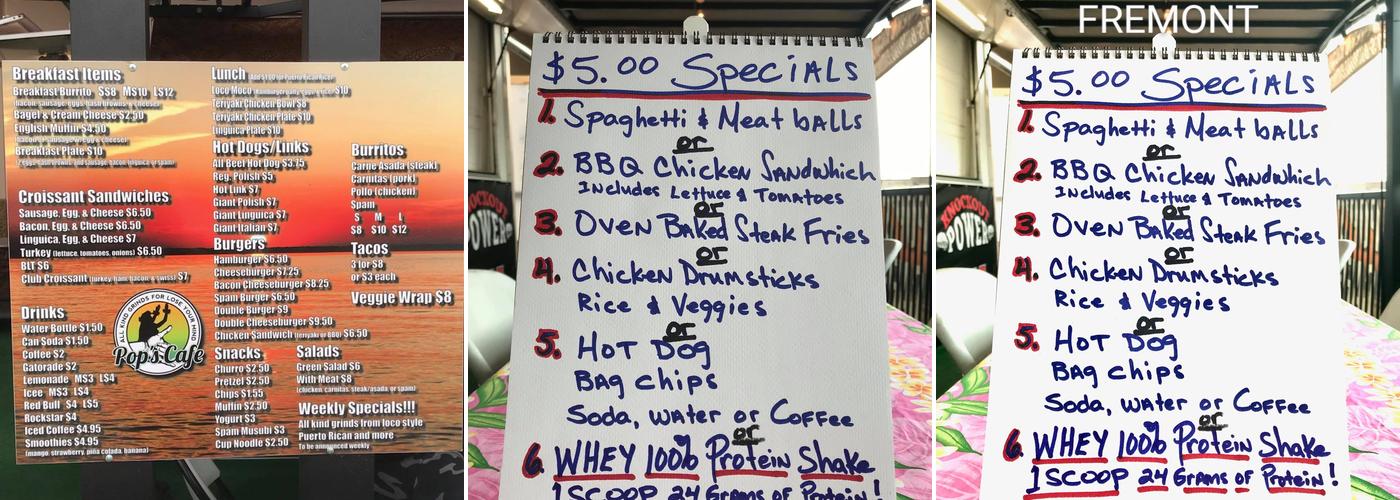 Breakfast Items
Breakfast Burrito S$8 M$10 L$12
(bacon, sausage, eggs, hash browns, & cheese)
Bagel & Cream Cheese $2.50
English Muffin $4.50
(bacon, sausage w/egg & cheese)
Breakfast Plate $10
(2 eggs, hash browns, and sausage, bacon, linguica or spam)
Croissant Sandwiches
Sausage, Egg, & Cheese $6.50
Bacon, Egg, & Cheese $6.50
Linguica, Egg, & Cheese $7
Turkey (lettuce, tomatoes, onions) $6.50
BLT $6
Club Croissant (turkey, ham, bacon, & swiss) $7
Drinks
Water Bottle $1.50
Can Soda $1.50
Coffee $2
Gatorade $2
Lemonade M$3 L$4
Icee M$3 L$4
Red Bull $4 L$5
Rockstar $4
Iced Coffee $4.95
Smoothies $4.95
(mango, strawberry, piña colada, banana)
ALL KIND GRINDS FOR LOSE YOUR MIND
Pop's Cafe
Lunch (Add $1.00 for Puerto Rican Rice)
Loco Moco (hamburger patty, eggs, & rice) $10
Teriyaki Chicken Bowl $8
Teriyaki Chicken Plate $10
Linguica Plate $10
Hot Dogs/Links
All Beef Hot Dog $3.75
Reg. Polish $5
Hot Link $7
Giant Polish $7
Giant Linguica $7
Giant Italian $7
Burgers
Hamburger $6.50
Cheeseburger $7.25
Bacon Cheeseburger $8.25
Spam Burger $6.50
Double Burger $9
Double Cheeseburger $9.50
Chicken Sandwich (teriyaki or BBQ) $6.50
Snacks
Churro $2.50
Pretzel $2.50
Chips $1.55
Muffin $2.50
Yogurt $3
Spam Musubi $3
Cup Noodle $2.50
Salads
Green Salad $6
With Meat $8
(chicken, carnitas, steak/asada, or spam)
Weekly Specials!!!
All kind grinds from loco style
Puerto Rican and more
To be announced weekly
Burritos
Carne Asada (steak)
Carnitas (pork)
Pollo (chicken)
Spam
S M L
$8 $10 $12
Tacos
3 for $8
or $3 each
Veggie Wrap $8
$5.00 SpeciALs
1. Spaghetti & Meat bALLs
or
2. BBQ Chicken SANdwhich
Includes Lettuce & Tomatoes
or
3. OVEN BaKed SteaK Fries
or
4. ChickeN Drumsticks
Rice & Veggies
or
5. HOT Dog
BAg chips
Soda, WAter or Coffee
or
6. WHEY 100% Protein Shake
1 SCOOP 24 Grams of Protein!
FREMONT
$5.00 SpeciALs
1. Spaghetti & Meat bALLs
or
2. BBQ Chicken SANdwhich
Includes Lettuce & Tomatoes
or
3. OVEN BaKed SteaK Fries
or
4. ChickeN Drumsticks
Rice & Veggies
or
5. HOT Dog
BAg chips
Soda, WAter or Coffee
or
6. WHEY 100% Protein Shake
1 SCOOP 24 Grams of Protein!
KNOCKOUT
POWER